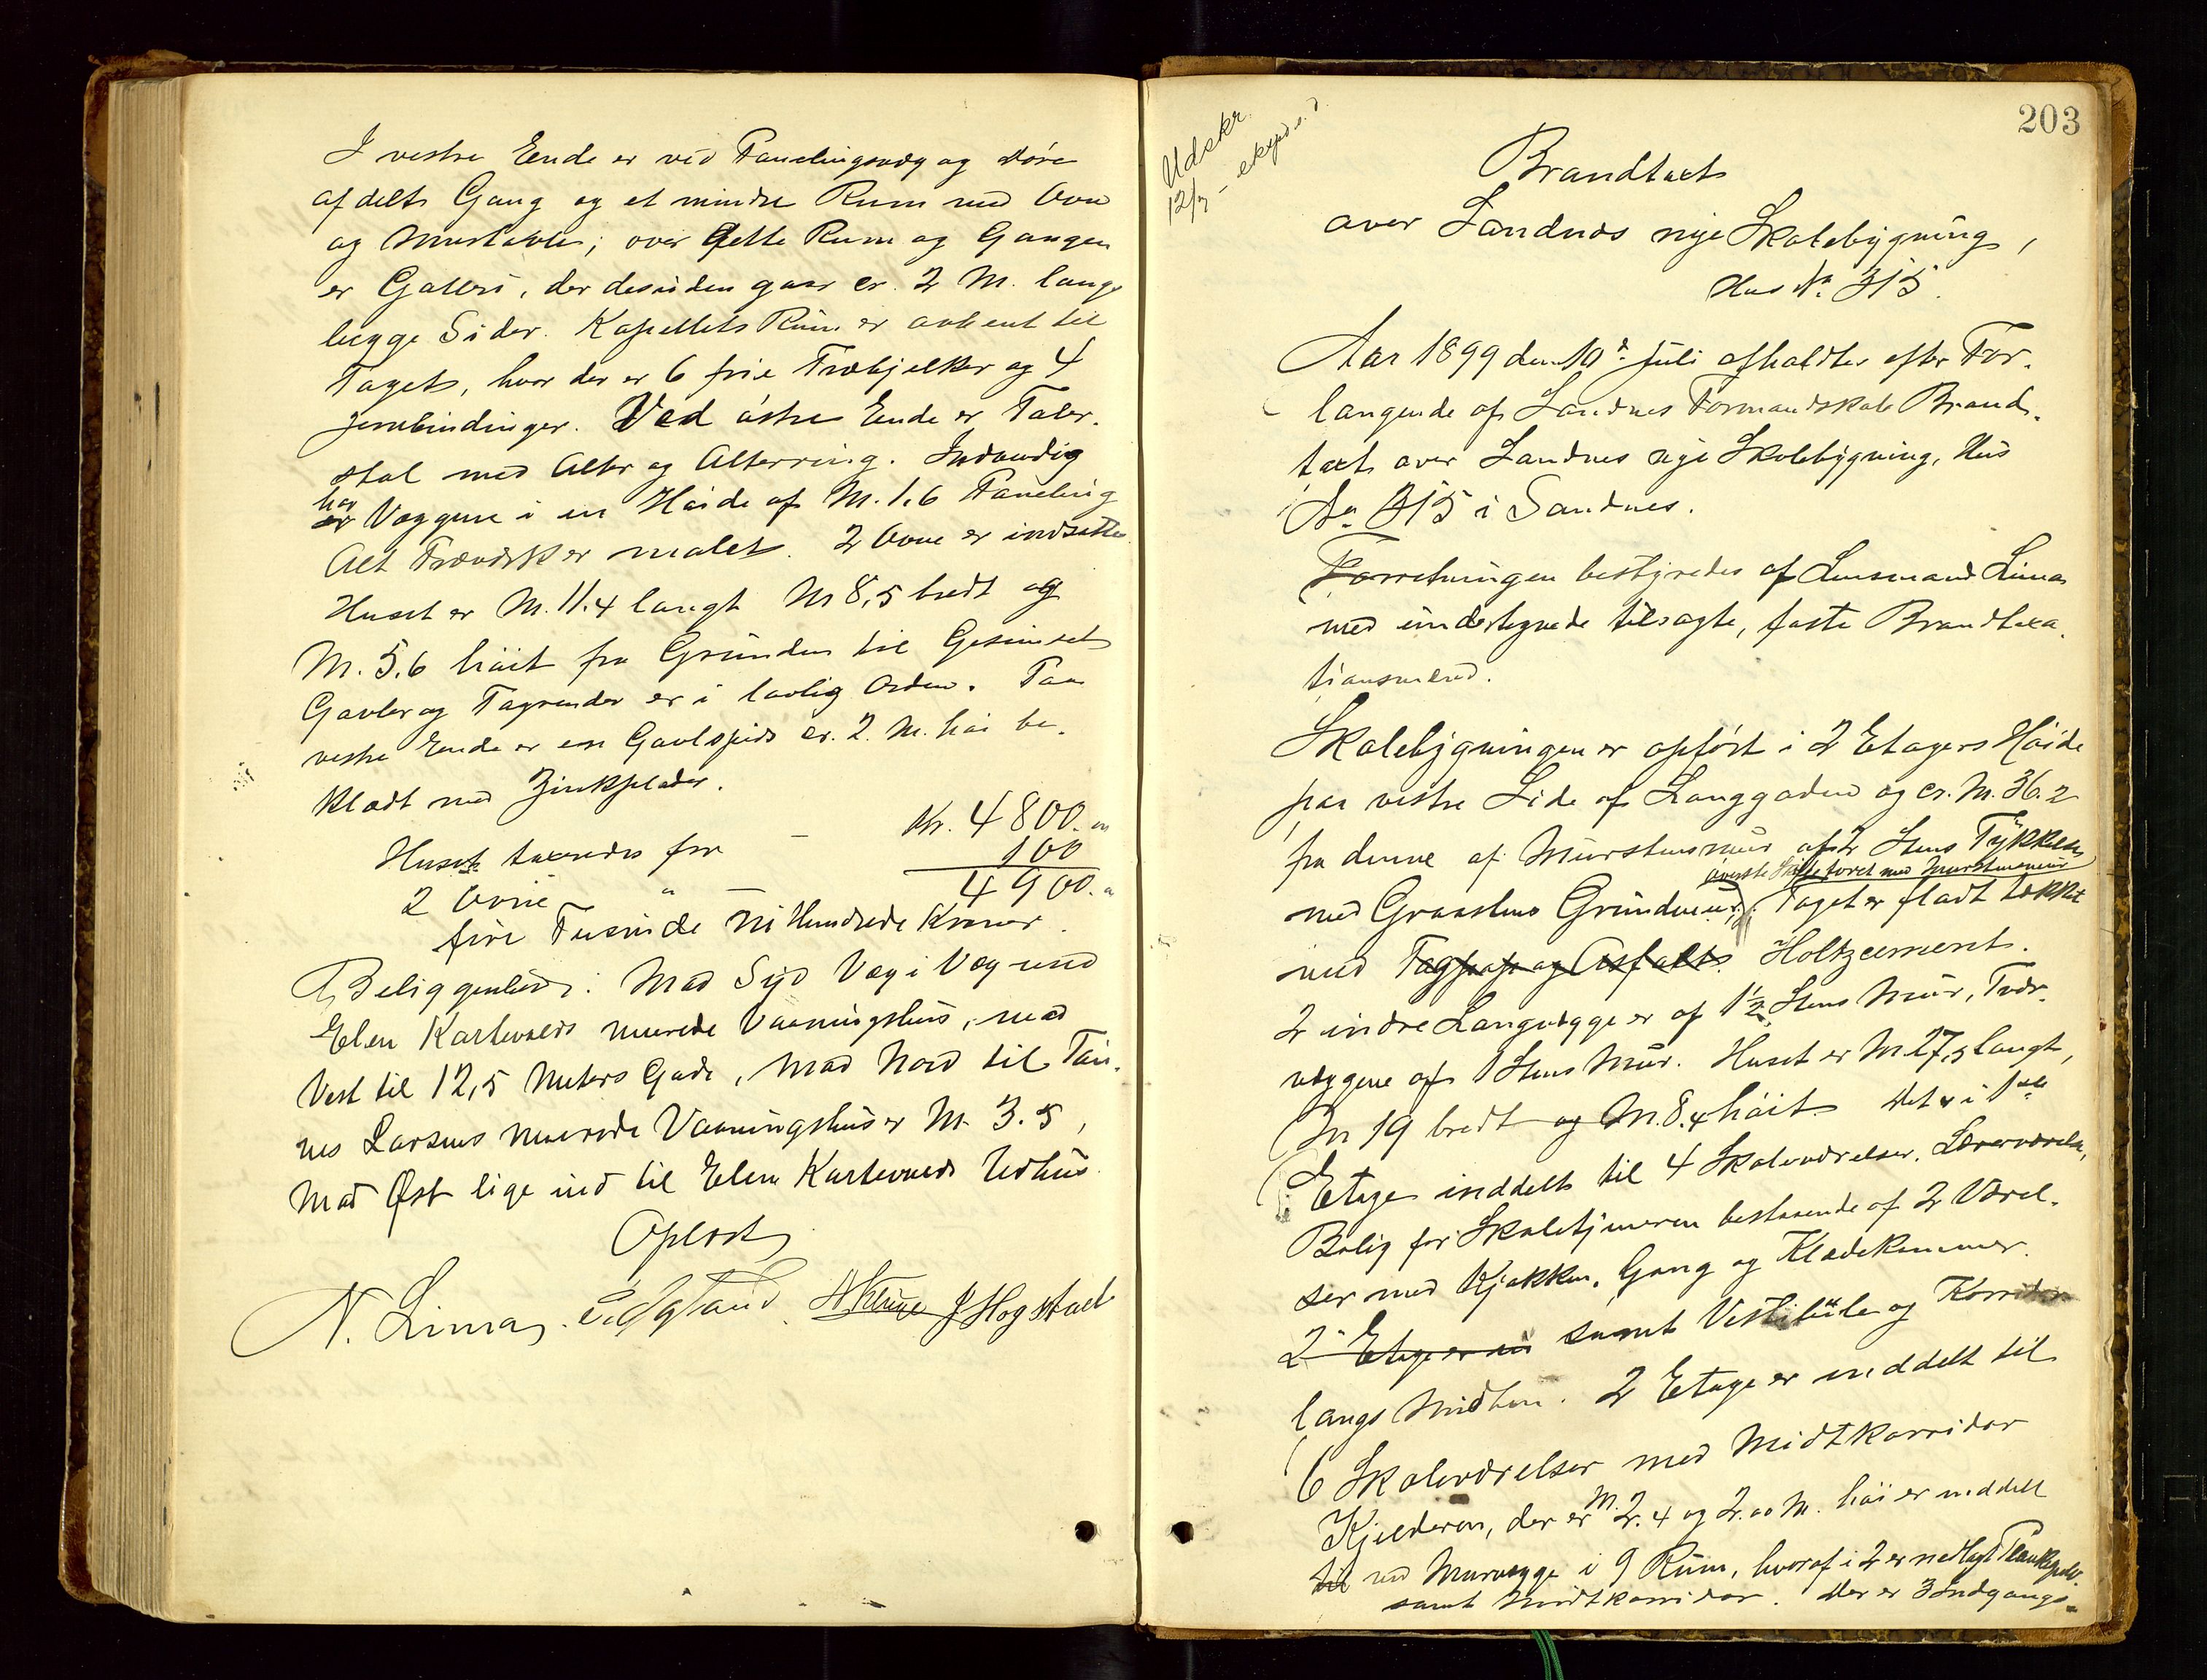 I vestre Ende er ved Panelingsvæg og Døre
afdelt Gang og et mindre Rum med Ovn
og Murtavle; over dette Rum og Gangen
er Galleri, der desuden gaar cr. 2 M. langs
begge Sider. Kapellets Rum er aabent til
Taget, hvor der er 6 frie Træbjelker og 4
Jernbindinger. Ved østre Ende er Taler-
stol med Alter og Alterring. Indvendig
har
er Væggene i en Høide af M. 1.6 Paneling
Alt Træværk er malet. 2 Ovne er indsatte
Huset er M. 11.4 langt M 8,5 bredt og
M. 5.6 høit fra Grunden til Gesimset
Gavler og Tagrender er i lovlig Orden. Paa
vestre Ende er en Gavlspids cr. 2. M. høi be-
klædt med Zinkplader.
Huset taxeredes for — Kr. 4800. „
2 Ovne „ — 100
4900. „
fire Tusinde ni Hundrede Kroner.
Beliggenhed: Mod Syd Væg i Væg med
Elen Kartevolds murede Vaaningshus, mod
Vest til 12,5 Meters Gade, mod Nord til Tøn-
nes Larsens murede Vaaningshus er M. 3.5,
mod Øst lige ind til Elen Kartevolds Udhus.
Oplæst
N. Lima. J Hogstad
203
Udskr.
12/7 – exped.
Brandtaxt
over Sandnes nye Skolebygning,
Hus No. 315.
Aar 1899 den 10de Juli afholdtes efter For-
langende af Sandnes Formandskab Brand-
taxt over Sandnes nye Skolebygning, Hus
No. 315 i Sandnes.
Forretningen bestyredes af Lensmand Lima
med undertegnede tilsagte, faste Brandtaxa-
tionsmænd.
Skolebygningen er opført i 2 Etagers Høide
paa vestre Side af Langgaden og cr. M. 36.2
fra denne af Murstensmur af 2 Stens Tykkelse
øverste Skifte foret med Murstensmur
med Graastens Grundmur; Taget er fladt tækket
med Tagpap og Asfalt. Holtzcement.
2 indre Langvægge er af 1½ Stens Mur, Tvær-
væggene af 1 Stens Mur. Huset er M. 27,5 langt,
M 19 bredt og M. 8.4 høit Det er i 1ste
Etage inddelt til 4 Skoleværelser. Lærerværelse,
Bolig for Skoletjeneren bestaaende af 2 Værel-
ser med Kjøkken. Gang og Klædekammer.
2. Etage er in samt Vestibule og Korridor
langs Midten. 2 Etage er inddelt til
6 Skoleværelser med Midtkorridor
Kjelderen, der er M. 2.4 og 2.00 M. høi er inddelt
til ved Murvægge i 9 Rum, hvoraf i 2 er nedlagt Plankegulv
samt Midtkorridor. Der er 3 Indgangs-